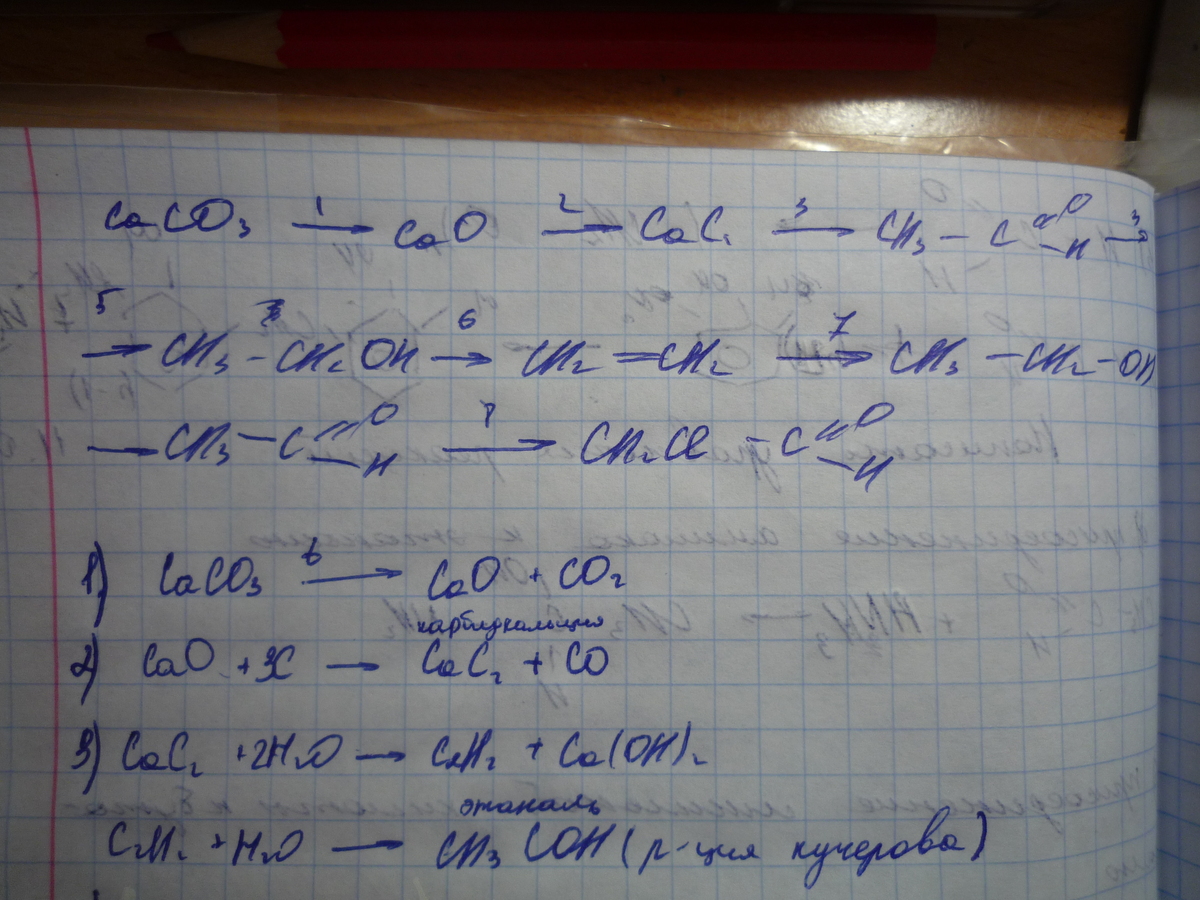 CaCO₃ 1→ CaO 2→ CaC₂ 3→ CH₃ – C =O –H 3→
5→ CH₃ – CH₂OH 6→ CH₂ = CH₂ 7→ CH₃ – CH₂ – OH
→ CH₃ – C =O –H 8→ CH₂Cl – C =O –H
1) CaCO₃ t→ CaO + CO₂
карбид кальция
2) CaO + 3C → CaC₂ + CO
3) CaC₂ + 2H₂O → C₂H₂ + Ca(OH)₂
этаналь
C₂H₂ + H₂O → CH₃COH (р-ция Кучерова)